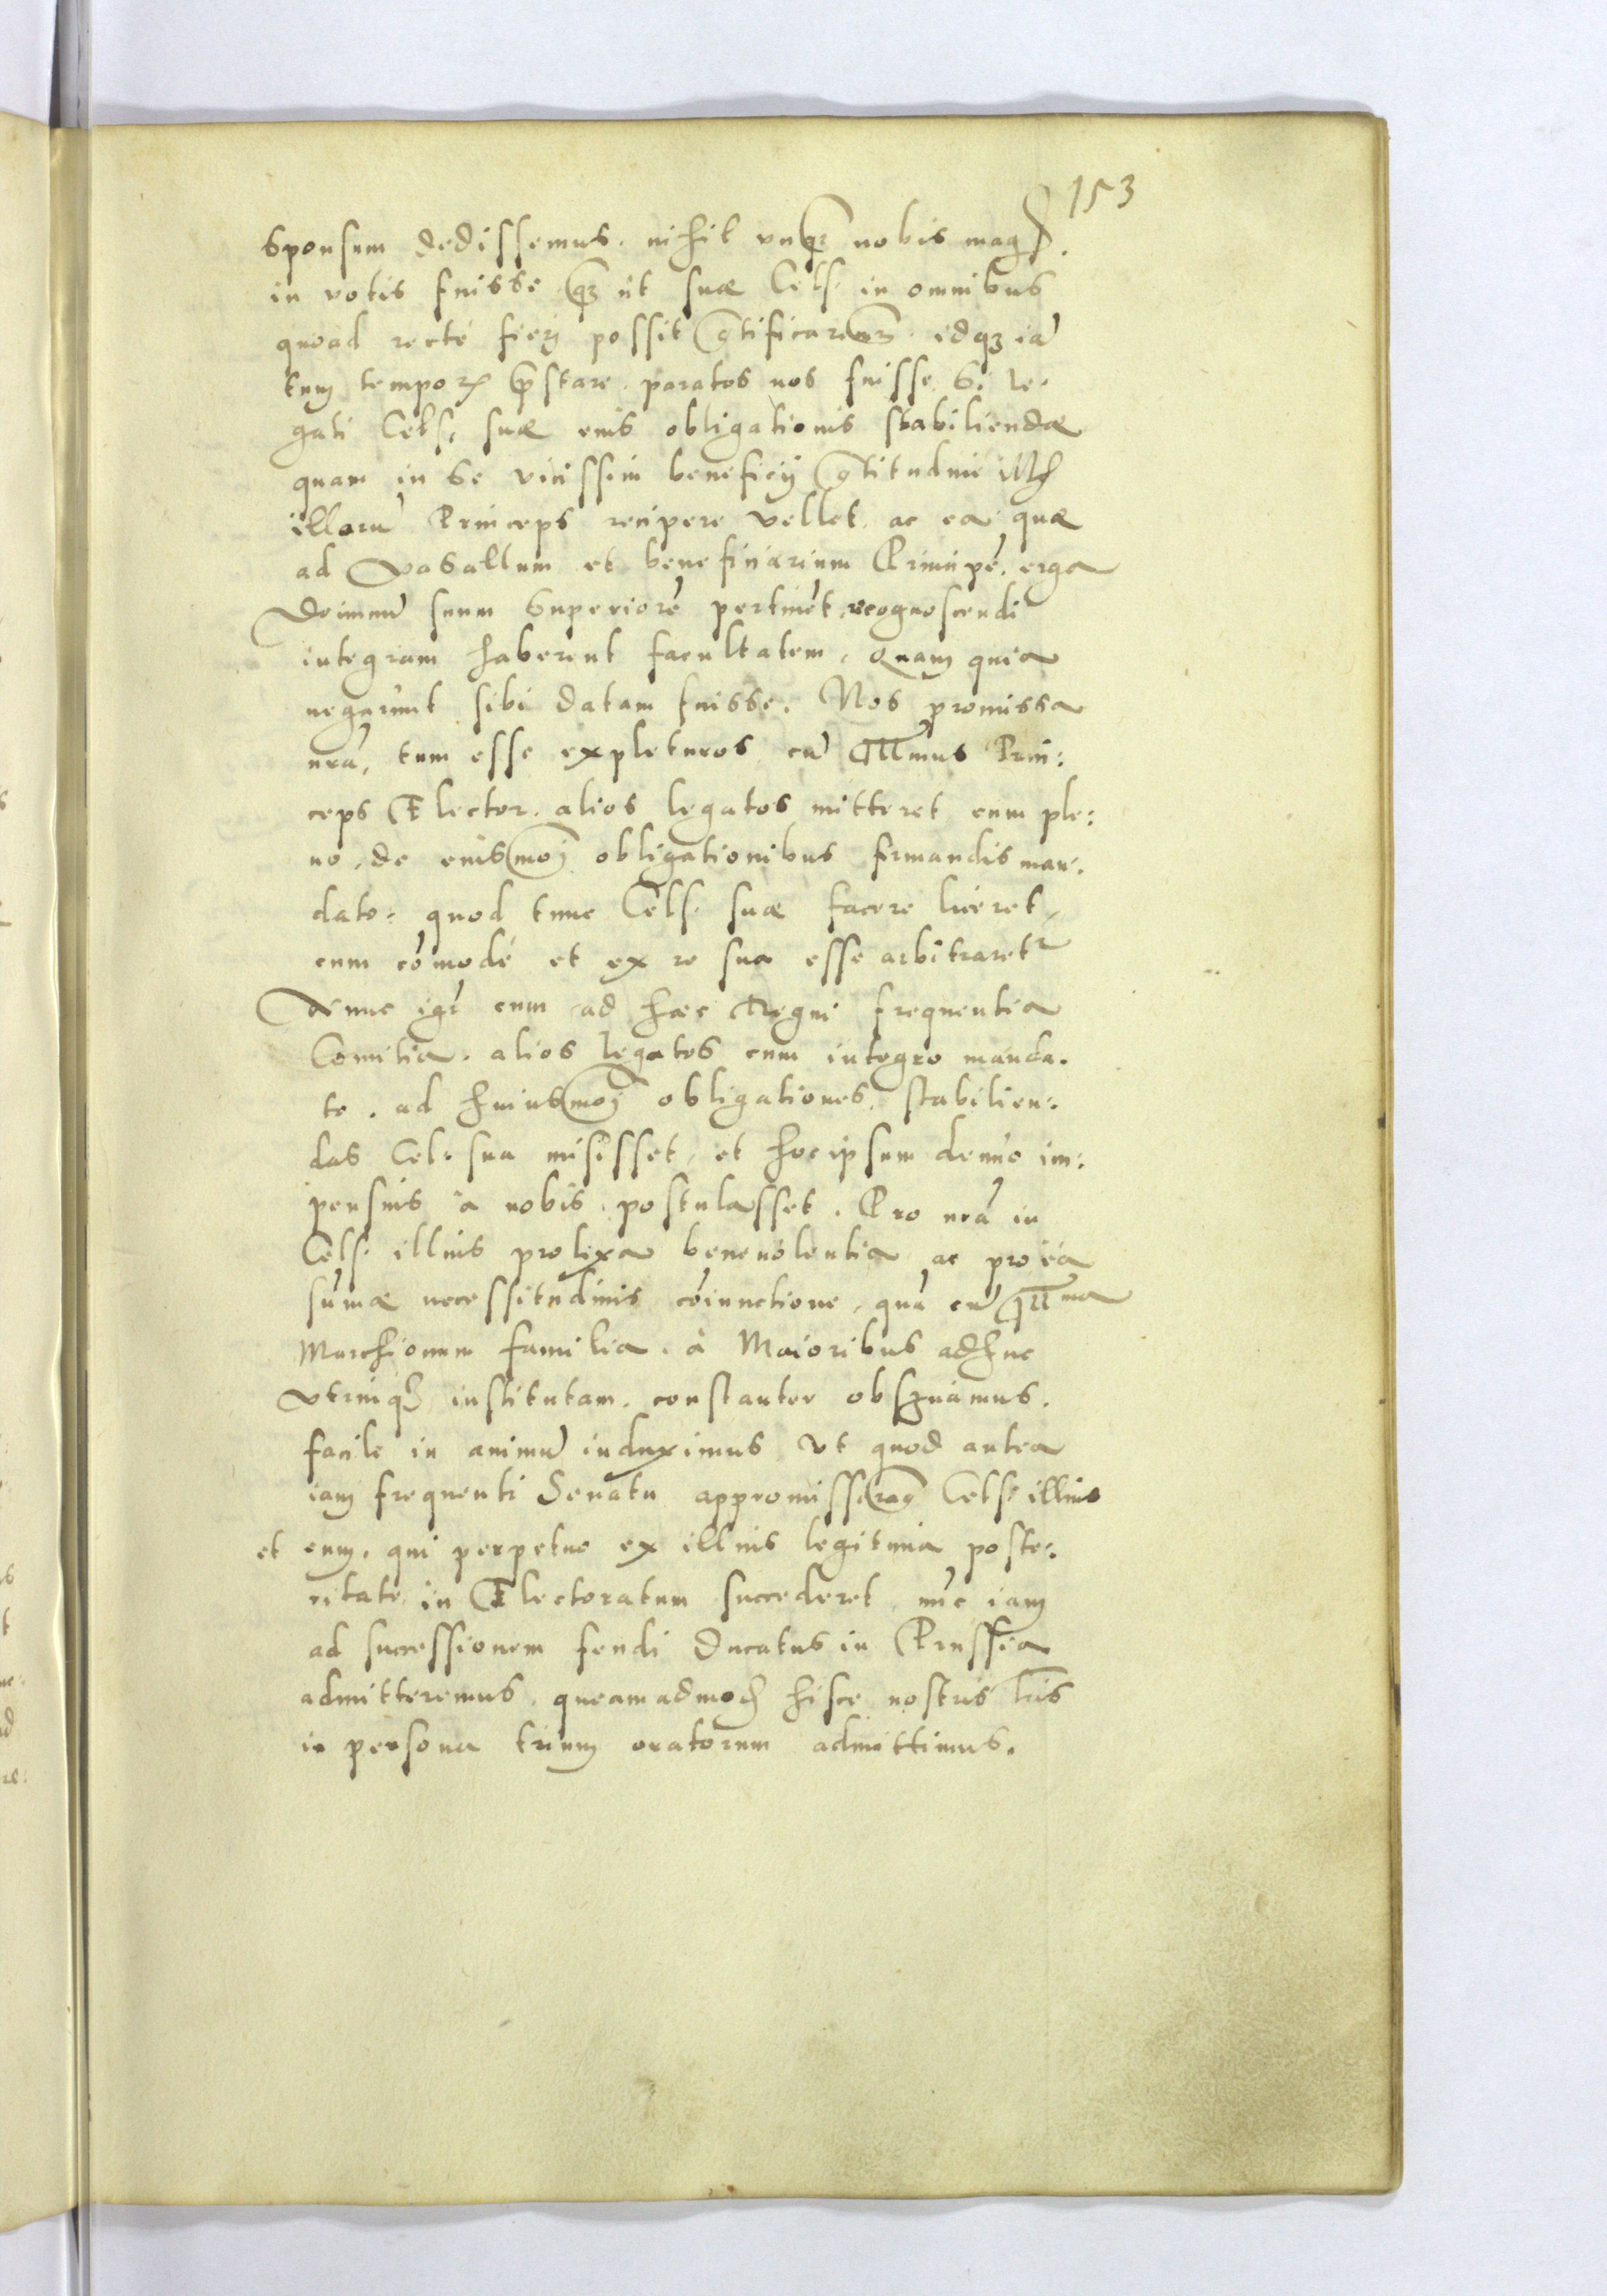 153
sponsum dedissemus. nihil vnqȝ nobis mag̃.
in votis fuisse qȝ ut suæ Cels. in omnibus
quoad recté fierj possit gtificaremȝ. idqȝ iã
tum temporȩ p̃stare paratos nos fuisse, si le-
gati Cels. suæ eius obligationis stabiliendæ
quam in se vicissim beneficij gtitudine
illorũ Princeps recipere vellet, ac ea quæ
ad vasallum et beneficiarium Principẽ, erga
Dominũ suum superiorẽ pertinẽt, recognoscendi
integram haberent facultatem. Quam quia
negarunt sibi datam fuisse. Nos promissa
nrã, tum esse expleturos, cũ Illmus Prin:
ceps Elector. alios legatos mitteret cum ple:
no, de eiusmoj obligationibus firmandis man:
dato: quod tunc Cels. suæ facere liceret,
cum cõmodé et ex re sua esse arbitraretr
Nunc igr̃ cum ad hæc Regni frequentia
Comitia. alios legatos cum integro manda-
to. ad huiusmoj obligationes, stabilien:
das Cel. sua misisset, et hoc ipsum denuo im:
pensius à nobis postulasset. Pro nrã in
Cels. illius prolixa beneuolentia ac pro ea
sum̃æ necessitudinis cõiunctione, quã cũ Illma
Marchionum familia. à Maioribus adhuc
vtrinqȝ institutam. constanter obseruamus.
facile in animũ induximus vt quod antea
iam frequenti Senatu appromisseramȝ Cels. illius
et eum, qui perpetuo ex illius legitima poste:
ritate in Electoratum succederet nũc iam
ad successionem feudi Ducatus in Prussia
admitteremus, queamadmoduȝ hisce nostris lris
in persona trium oratorum admittimus.